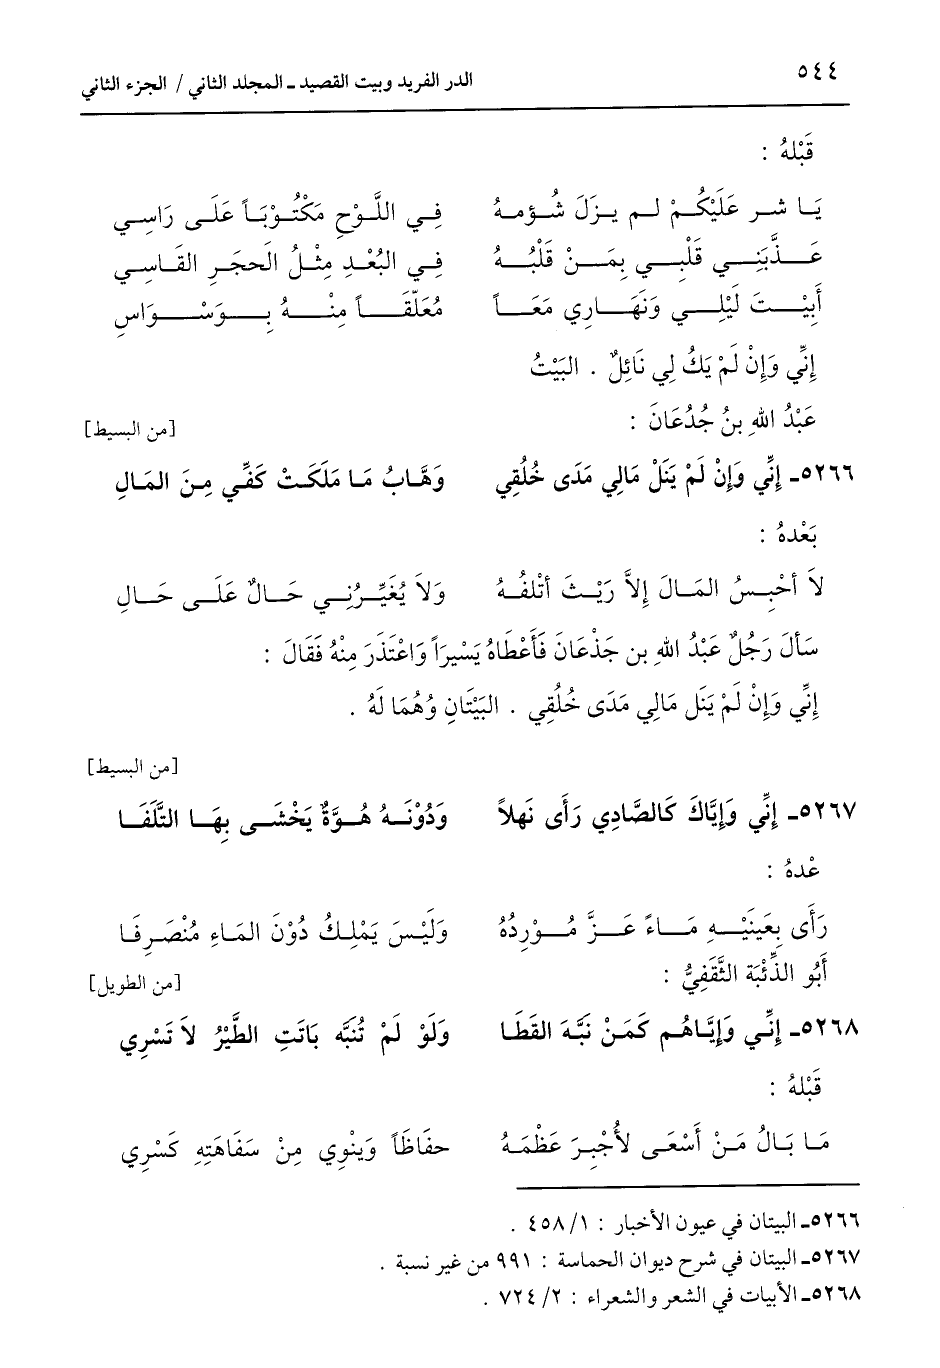 ٥٤٤ الدر الفريد وبيت القصيد ـ المجلد الثاني / الجزء الثاني
قَبْلهُ :
يَا شر عَلَيْكُمْ لم يزلَ شُؤمهُ فِي اللَّوْحِ مَكْتُوْبَاً عَلَى رَاسِي
عَذَّبَنِي قَلْبي بِمَنْ قَلْبُهُ فِي البُعْدِ مِثْلُ الحَجَرِ القَاسِي
أَبِيْتَ لَيْلِي وَنَهَارِي مَعَاً مُعَلّقَاً مِنْهُ بوَسْوَاسِ
إِنِّي وَإِنْ لَمْ يَكُ لِي نَائِلٌ . البَيْتُ
عَبْدُ اللهِ بنُ جُدُعَانَ : [من البسيط]
٥٢٦٦ـ إِنِّي وَإِنْ لَمْ يَنَلْ مَالِي مَدَى خُلُقِي وَهَّابُ مَا مَلَكَتْ كَفِّي مِنَ المَالِ
بَعْدهُ :
لاَ أحْبِسُ المَالَ إِلاَّ رَيْثَ أتْلفُهُ وَلاَ يُغَيِّرُنِي حَالٌ عَلَى حَالِ
سَألَ رَجُلٌ عَبْدُ اللهِ بن جَذْعَانَ فَأَعْطَاهُ يَسْيرَاً وَاعْتَذَرَ مِنْهُ فَقَالَ :
إِنِّي وَإِنْ لَمْ يَنَل مَالِي مَدَى خُلُقِي . البَيْتَانِ وهُمَا لَهُ .
[من البسيط]
٥٢٦٧ـ إِنِّي وَإِيَّاكَ كَالصَّادِي رَأَى نَهلاً وَدُوْنَهُ هُوَّةٌ يَخْشَى بِهَا التَّلَفَا
عْدهُ :
رَأَى بِعَينَيْهِ مَاءً عَزَّ مُوْرِدُهُ وَلَيْسَ يَمْلِكُ دُوْنَ المَاءِ مُنْصَرِفَا
أَبُو الذِّئْبَة الثَّقَفِيُّ : [من الطويل]
٥٢٦٨ـ إِنِّي وَإِيَّاهُم كَمَنْ نَبَّهَ القَطَا وَلَوْ لَمْ تُنَبَّه بَاتَتِ الطَّيْرُ لاَ تَسْرِي
قَبْلهُ :
مَا بَالُ مَنْ أَسْعَى لأُجْبِرَ عَظْمَهُ حفَاظَاً وَيَنْوِي مِنْ سَفَاهَتِهِ كَسْرِي
٥٢٦٦ـ البيتان في عيون الأخبار : ١/ ٤٥٨ .
٥٢٦٧ـ البيتان في شرح ديوان الحماسة : ٩٩١ من غير نسبة .
٥٢٦٨ـ الأبيات في الشعر والشعراء : ٢/ ٧٢٤ .